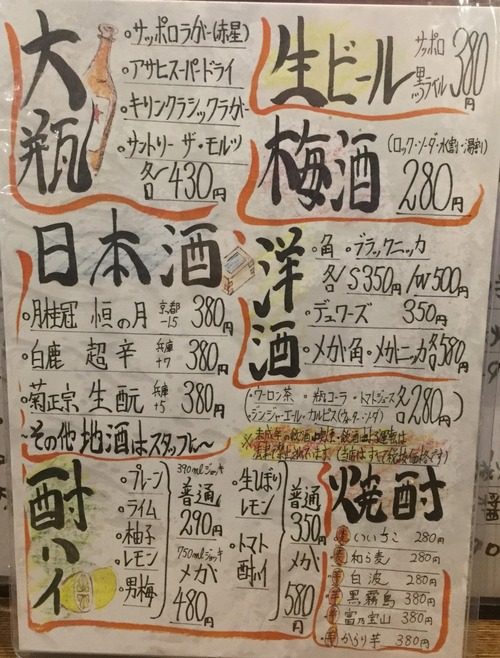 大瓶
・サッポロラガー(赤星)
・アサヒスーパードライ
・キリンクラシックラガー
・サントリー ザ・モルツ
各430円
生ビール
サッポロ
黒ラベル
380円
梅酒
(ロック・ソーダ・水割・湯割)
280円
日本酒
・月桂冠 恒の月 京都 -15 380円
・白鹿 超辛 兵庫 +7 380円
・菊正宗 生酛 兵庫 +5 380円
~その他地酒はスタッフに~
洋酒
・角 ・ブラックニッカ
各S350円/W500円
・デュワーズ 350円
・メガ角・メガニッカ各580円
(・ウーロン茶 ・瓶コーラ ・トマトジュース
・ジンジャーエール・カルピス(ウォーター・ソーダ) 各280円)
酎ハイ
・プレーン
・ライム
・柚子
・レモン
・男梅
390mlジョッキ
普通
290円
750mlジョッキ
メガ
480円
・生しぼりレモン
・トマト酎ハイ
普通
350円
メガ
580円
焼酎
麦 いいちこ 280円
麦 和ら麦 280円
芋 白波 280円
芋 黒霧島 380円
芋 富乃宝山 380円
芋 からり芋 380円